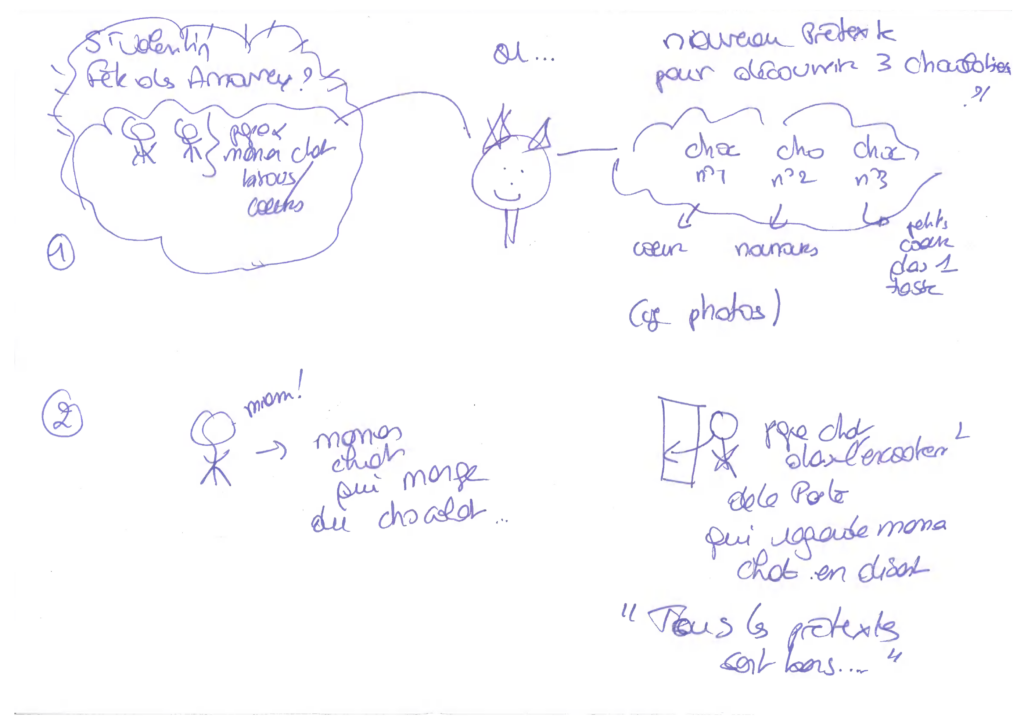 St Valentin
fête des Amoureux ?
papa &
maman chat
coeurs
ou...
nouveau Prétexte
pour découvrir 3 chocolats
?!
choc
n°1
cho
n°2
choc
n°3
coeur
nounours
petits
coeur
dans 1
tasse
(cf photos)
1
2
miam!
maman
chat
qui mange
du chocolat...
papa chat
dans l'encadrement
de la Porte
qui regarde maman
chat en disant
"Tous les prétextes
sont bons...."